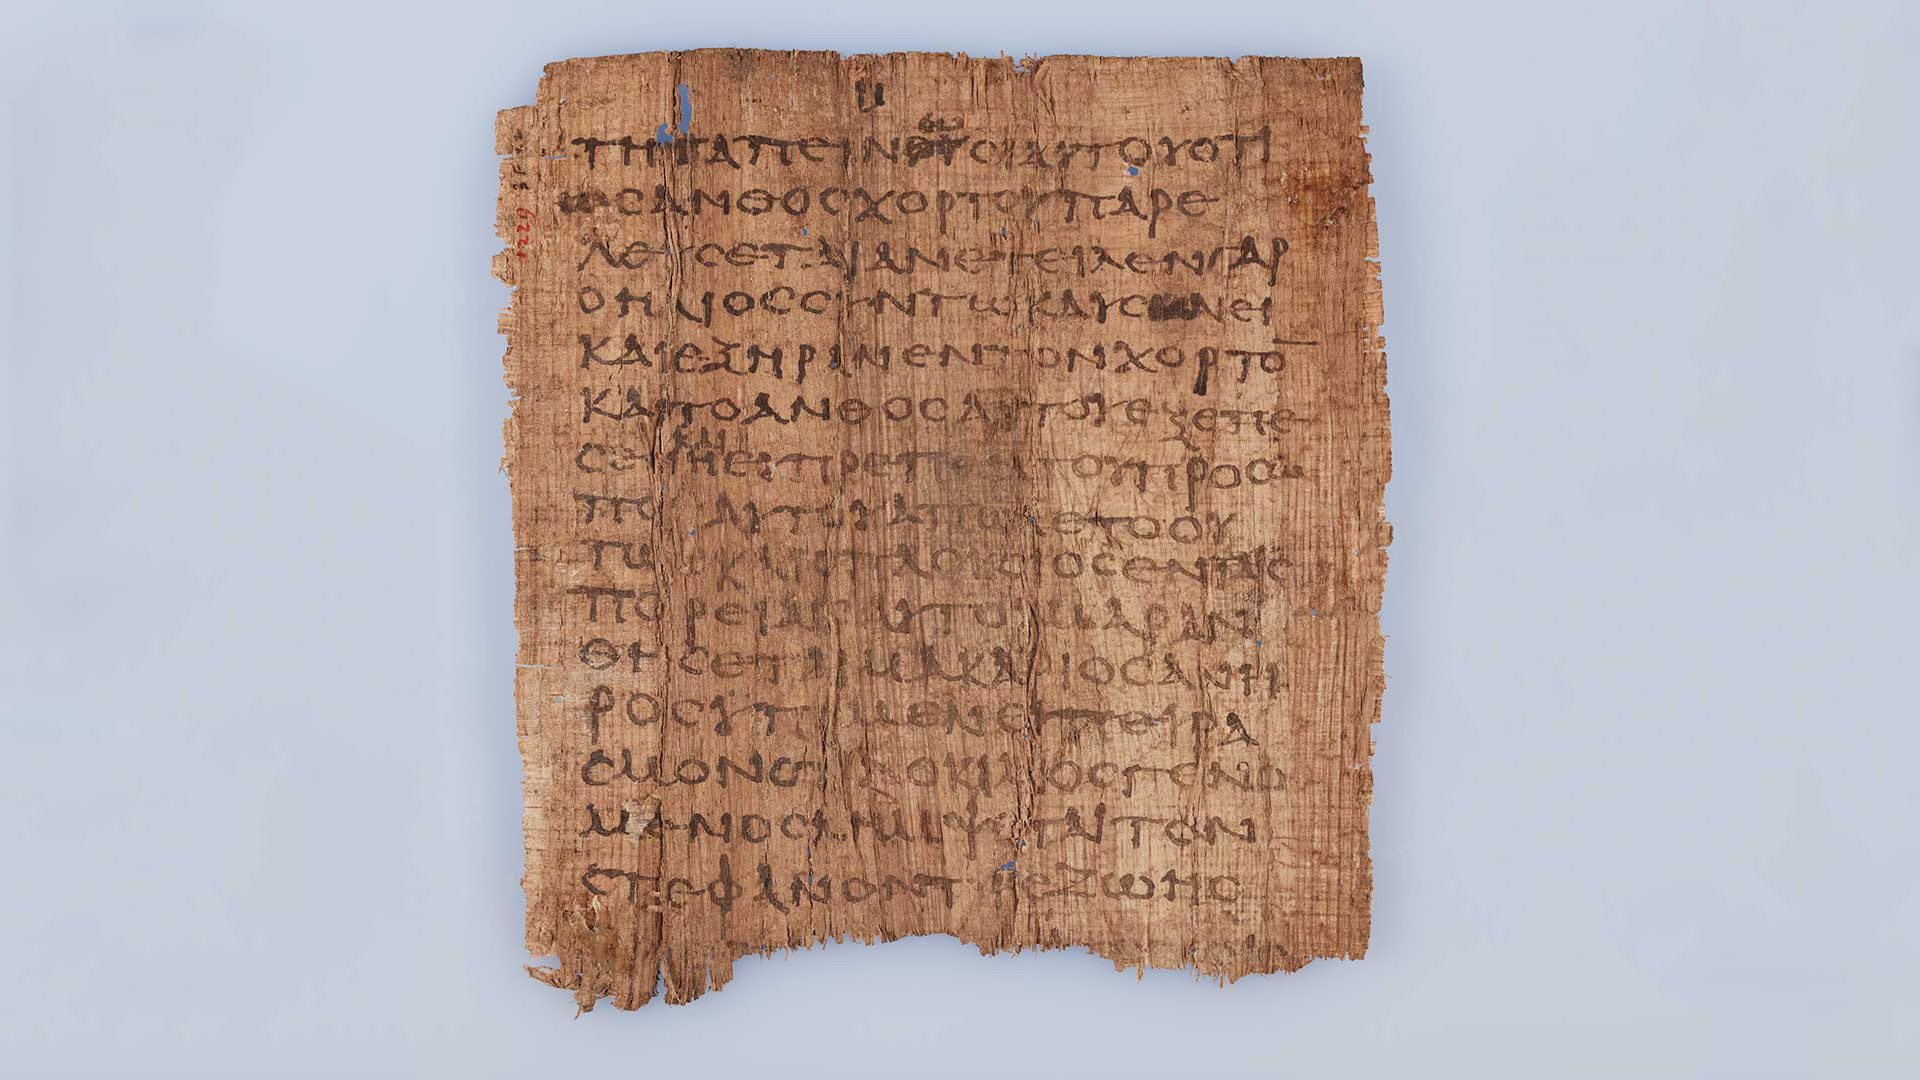 ΤΗ ΤΑΠΕΙΝΩϹΙ ΑΥΤΟΥ ΟΤΙ
ΩϹ ΑΝΘΟϹ ΧΟΡΤΟΥ ΠΑΡΕ
ΛΕΥϹΕΤΑΙ ΑΝΕΤΕΙΛΕΝ ΓΑΡ
Ο ΗΛΙΟϹ ϹΥΝ ΤΩ ΚΑΥϹΩΝΕΙ
ΚΑΙ ΕΞΗΡΑΝΕΝ ΤΟΝ ΧΟΡΤΟ̅
ΚΑΙ ΤΟ ΑΝΘΟϹ ΑΥΤΟΥ ΕΞΕΠΕ
ϹΕ ΚΑΙ Η ΕΥΠΡΕΠΕΙΑ ΤΟΥ ΠΡΟϹΩ
ΠΟΥ ΑΥΤΟΥ ΑΠΩΛΕΤΟ ΟΥ
ΤΩϹ ΚΑΙ Ο ΠΛΟΥϹΙΟϹ ΕΝ ΤΑΙϹ
ΠΟΡΕΙΑΙϹ ΑΥΤΟΥ ΜΑΡΑΝ
ΘΗϹΕΤΑΙ ΜΑΚΑΡΙΟϹ ΑΝΗΡ
ΡΟϹ ΥΠΟΜΕΝΕΙ ΠΕΙΡΑ
ϹΜΟΝ ΟΤΙ ΔΟΚΙΜΟϹ ΓΕΝΟ
ΜΕΝΟϹ ΛΗΜΨΕΤΑΙ ΤΟΝ
ϹΤΕΦΑΝΟΝ ΤΗϹ ΖΩΗϹ
1229